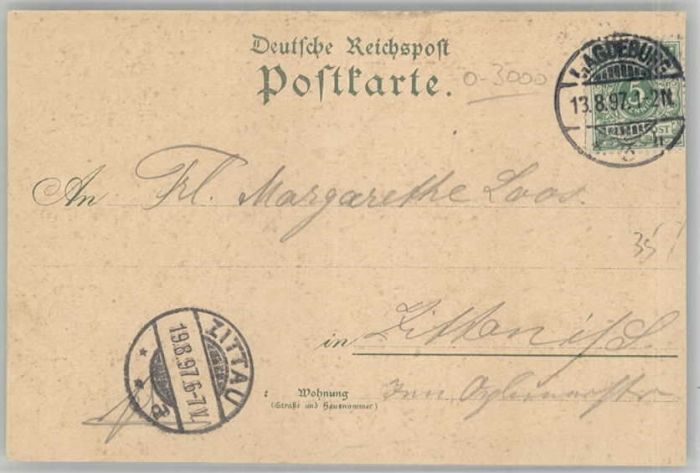 Deutsche Reichspost
Postkarte.
0-3000
MAGDEBURG
13.8.97.1-2N.
5
An Frl. Margarethe Loos.
35
in Zittau i/S.
ZITTAU
19.8.97.6-7V.
Wohnung
(Straße und Hausnummer)